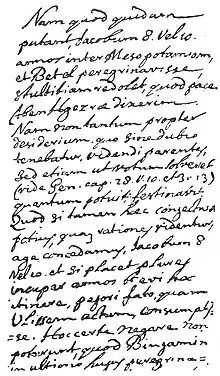 Nam quod quidam
putant, Jacobum 8. vel 10.
annos inter Mesopotamiam,
et Betel peregrinavisse,
stultitiam redolet, quod pace
Aben Hgezræ dixerim.
Nam non tantum propter
desiderium, quo sine dubio
tenebatur, videndi parentes,
sed etiam ut votum solveret
(vide Gen. cap. 28. v. 10. et 31. v. 13)
quantum potuit festinavit.
Quod si tamen hæc conjecturæ
potius, quam rationes videntur,
age concedamus, Jacobum 8
vel 10. et si placet plures
insuper annos brevi hoc
itinere, pejori fato, quam
Ulissem actum, consumpsis=
=se. Hoc certe negare non
poterunt, quod Binyamin
in ultimo hujus peregrina=